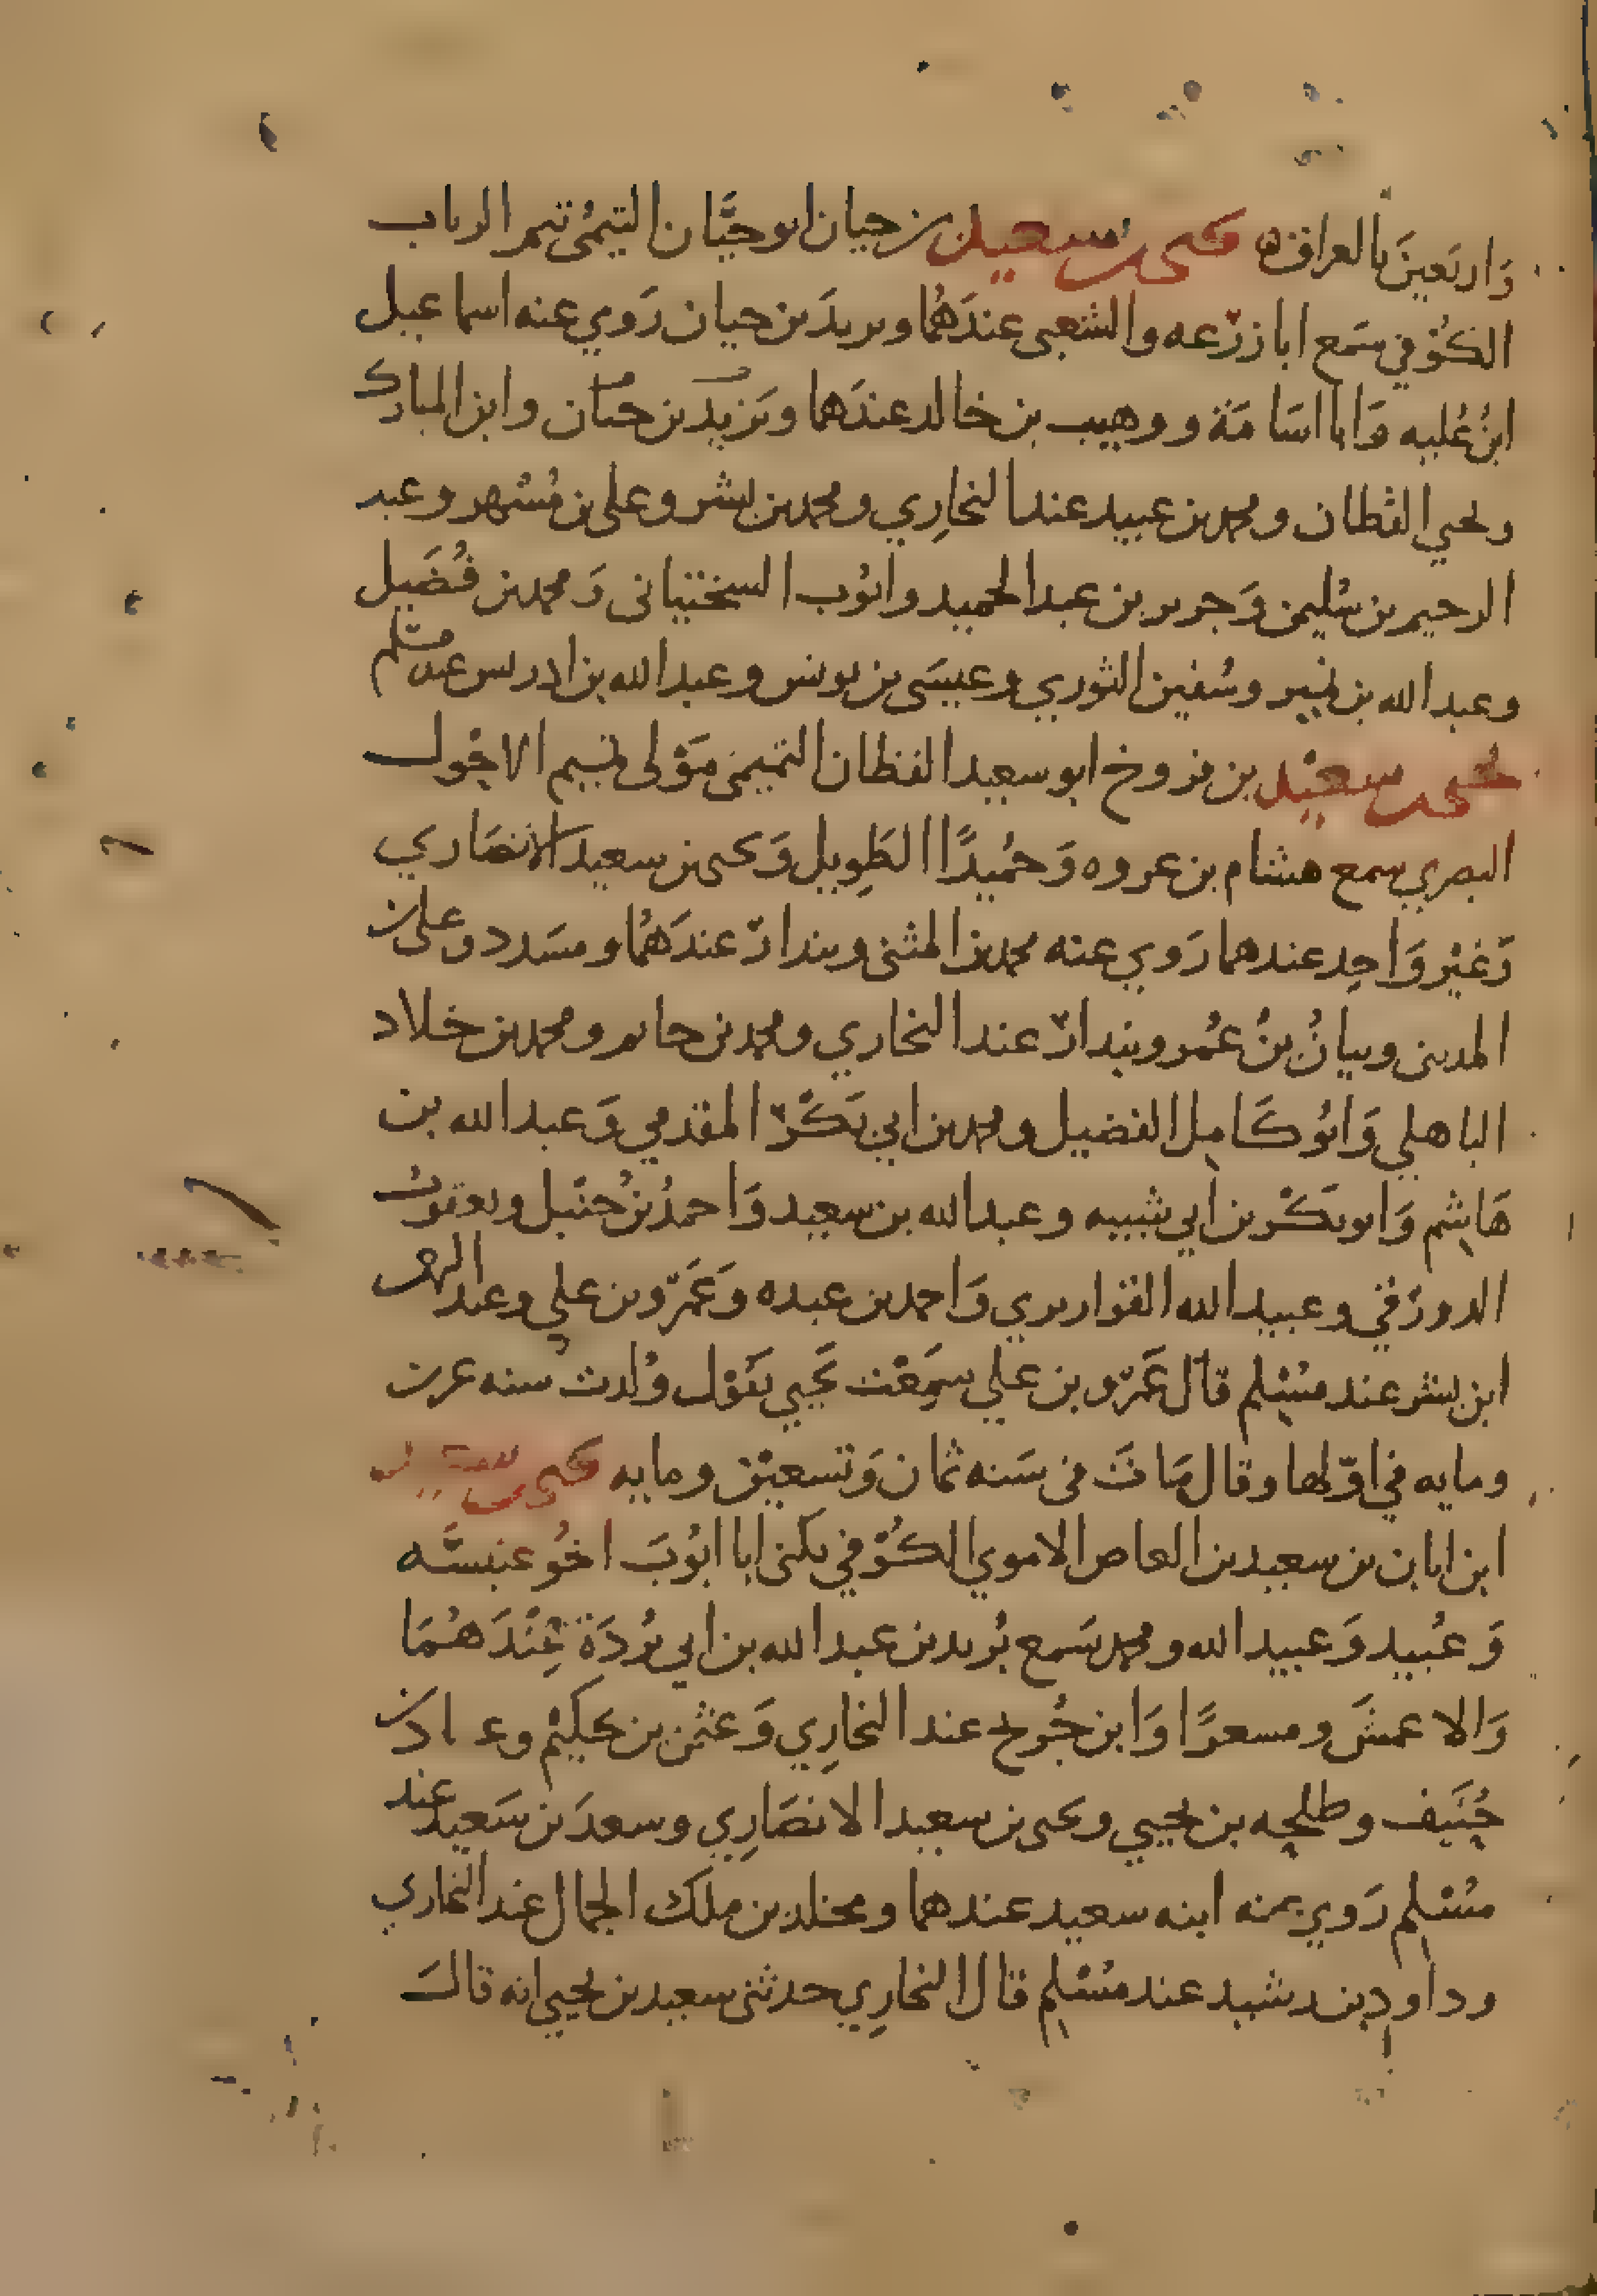 وَاربَعينَ بالعراق ه يحيى بن سعيد بن حيان ابو حيَّان التيمُي تيم الرباب
الكُوْفي سَمع ابا زرْعه والشعبى عندَهُما ويريدَ بن حيان رَوي عنه اسماعيل
ابنُ عُليه وَابا اسَامَة ووهيب بن خالد عندَهما ويَزيد بن حيان وابن المبارك
ويحيي القطان ومحمد بن عبيد عند البخارِي ومحمد بن بشر وعلى بن مُسْهر وعبد
الرحيم بن سُليمن وَجرير بن عبد الحميد وايوُب السختيانى وَمحمد بن فُضَيل
وعبد الله بن نمير وسُفين الثوري وعيسَى بن يونس وعبد الله بن ادريس عند مسلم
يحُيى بن سعيْد بن فروخ ابو سعيد القطان التميمى مَوْلى تميم الاحْول
البصري سمع هشام بن عروه وَحمُيدًا الطَوِيل وَيحيى بن سعيد الانصَاري
وَغيْر وَاحِد عندهما رَوي عنه محمد بن المثنى وبندارٌ عندَهمُا ومسَدد وعلى بن
المدينى وبيانُ بنُ عمُر وبندارٌ عند البخاري ومحمد بن حاتم ومحمد بن خلاد
الباهلي وَابوُ كَامِل الفضيل ومحمد بن ابي بَكْرٍ المقدمي وَعبد الله بن
هَاشِم وَابو بَكْر بن أبي شيبه وعبد الله بن سعيد وَاحمدُ بنُ حنْبل ويعقوبُ
الدورَقي وعبيد الله القواريري وَاحمد بن عبده وَعَمْرو بن علي وعبد الرحمن
ابن بشر عند مسْلِم قال عَمْرو بن علي سَمِعْت يَحيي يَقوْل وُلدت سنه عرين
ومايه في اوّلها وقال مَاتَ فى سَنه ثمان وَتسعيْن ومايه يحيى بن سعيد
ابن ابان بن سعيد بن العاص الاموي الكُوْفي يكنى ابا ايوُبَ اخُو عنبسَّه
وَعُبيد وَعبيد الله ومحمد سَمع بُريد بن عبد الله بن ابي بُردَة عِنْدَهُمَا
وَالاعمشَ ومسعرًا وَابن جُريج عند البخارِي وَعثمن بن حكيْم وعبادَ بن
حُنَيف وطلحِه بن يحيي ويحيى بن سعيد الانصَارِي وسعدَ بن سَعيد عند
مسْلِم رَوي عنه ابنه سعيد عندهما ومخلد بن ملك الجمال عند البخاري
وداود بن رشيد عند مسْلِم قال البخارِي حدثنى سعيد بن يحيي انه قالَ